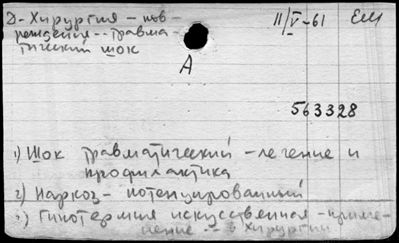 2-Хирургия - пов-
реждения - травма-
тический шок
11/V-61 Ем
А
563328
1) Шок травматический - лечение и
профилактика
2) Наркоз - потенцированный
3) Гипотермия искусственная - приме-
нение - в хирургии